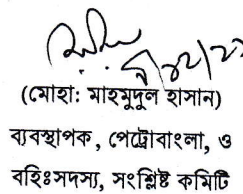 (মোহা: মাহমুদুল হাসান)
ব্যবস্থাপক, পেট্রোবাংলা, ও
বহিঃসদস্য, সংশ্লিষ্ট কমিটি